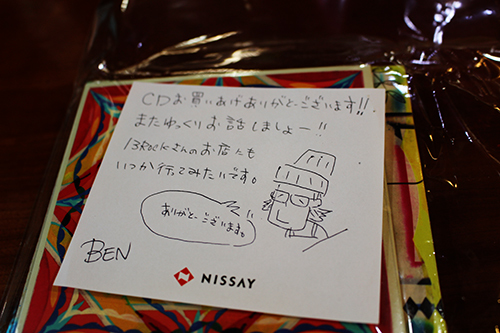 CDお買いあげありがとうございます!!
またゆっくりお話しましょー!!
13Rockさんのお店にも
いつか行ってみたいです。
ありがとうございます。!!
BEN
NISSAY